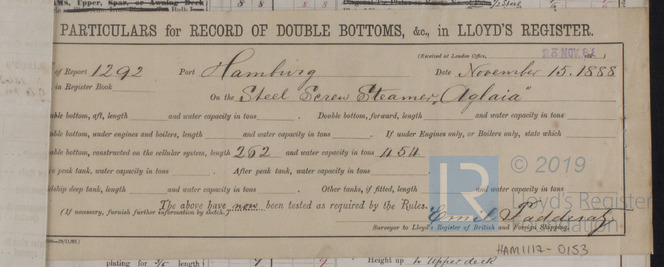 PARTICULARS for RECORD OF DOUBLE BOTTOMS, &c., in LLOYD'S REGISTER.
(Received at London Office,
of Report 1292 Port Hamburg Date November 15. 1888
in Register Book
On the Steel Screw Steamer "Aglaia"
ble bottom, aft, length and water capacity in tons . Double bottom, forward, length and water capacity in tons
ble bottom, under engines and boilers, length and water capacity in tons . If under Engines only, or Boilers only, state which
ble bottom, constructed on the cellular system, length 262 and water capacity in tons 454
peak tank, water capacity in tons . After peak tank, water capacity in tons
dship deep tank, length and water capacity in tons . Other tanks, if fitted, length and water capacity in tons
The above have now been tested as required by the Rules.
(If necessary, furnish further information by sketch.)
Emil Padderatz
Surveyor to Lloyd's Register of British and Foreign Shipping.
HAM1112-0153
plating for 3/5 length
Height up to Upper deck
LR
© 2019
Lloyd's Register
Foundation